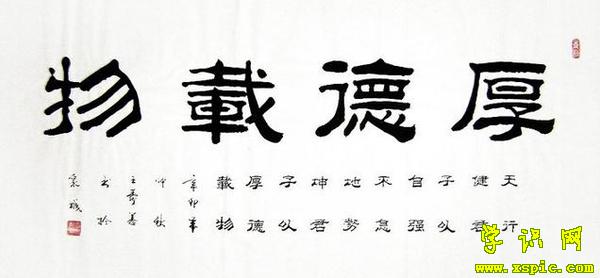 厚德載物
天行
健君
子以
自强
不息
地势
坤君
子以
厚德
載物
辛卯年
仲秋
学识网
www.xspic.com